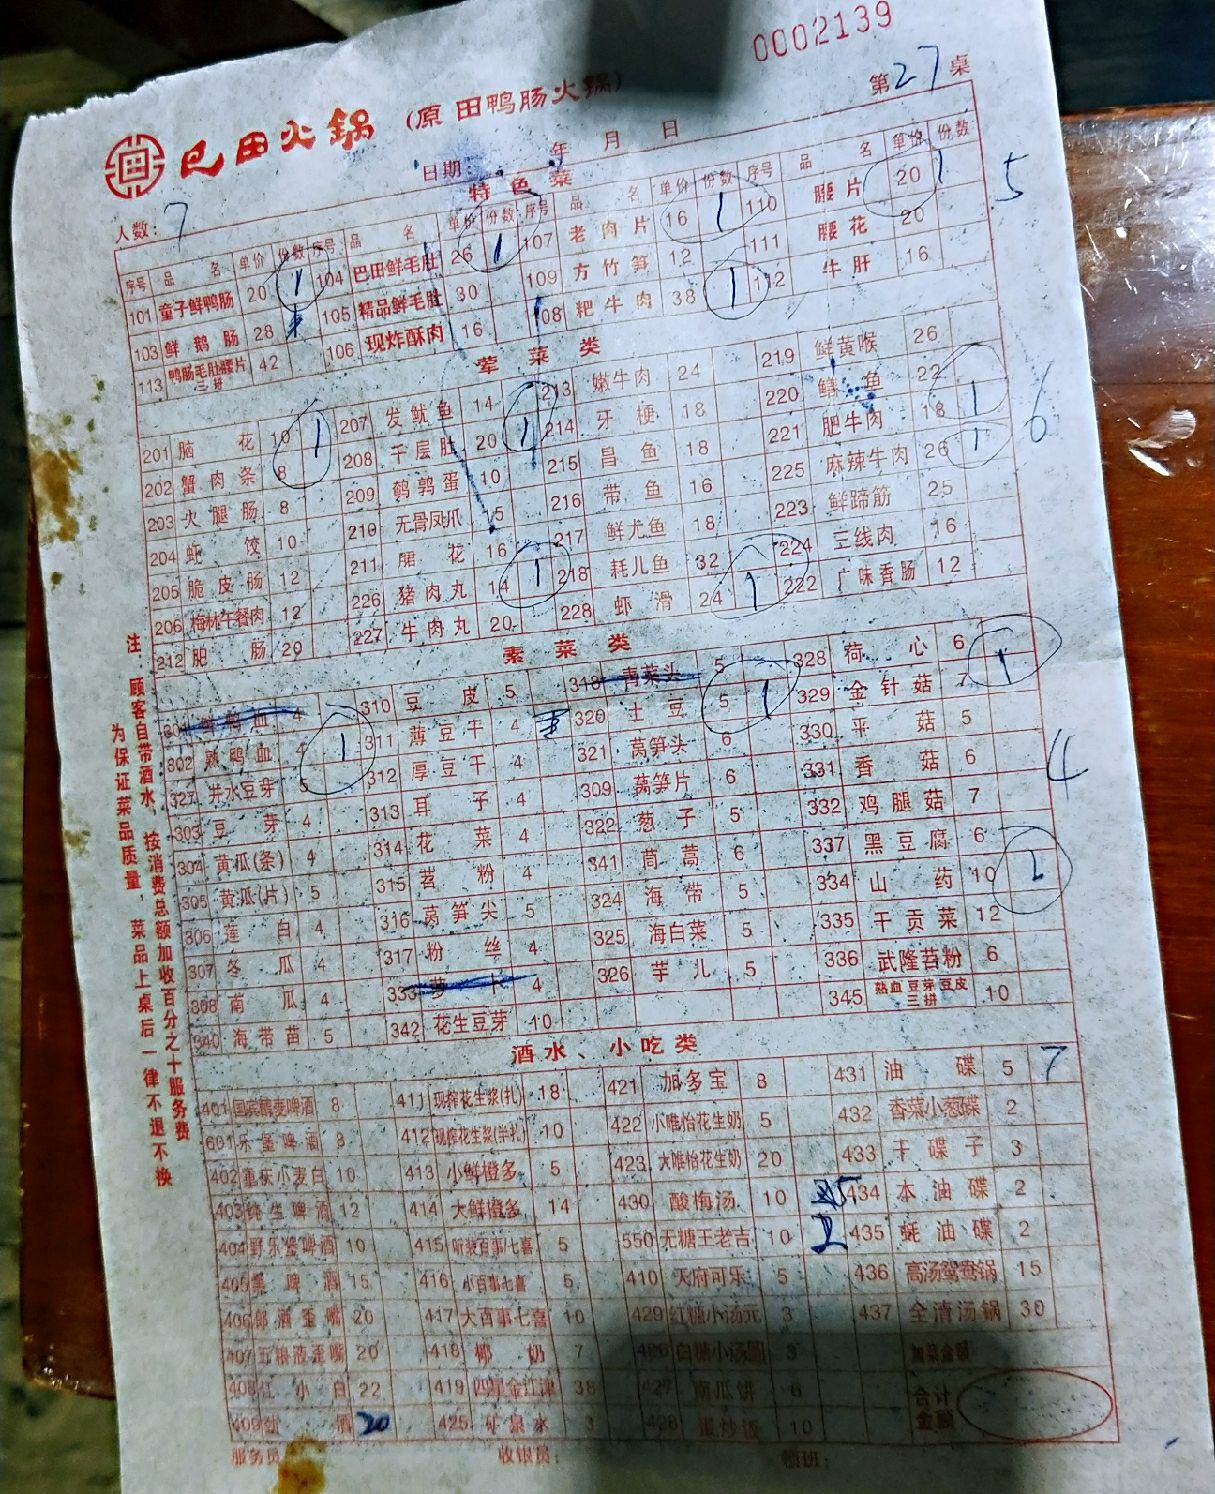 0002139
巴田火锅 (原田鸭肠火锅) 第27桌
日期 年 月 日
人数: 7
特色菜
序号 品名 单价 份数 序号 品名 单价 份数 序号 品名 单价 份数 序号 品名 单价 份数
101 童子鲜鸭肠 20 1 104 巴田鲜毛肚 26 1 107 老肉片 16 1 110 腰片 20 1 5
103 鲜鹅肠 28 105 精品鲜毛肚 30 109 方竹笋 12 111 腰花 20
113 鸭肠毛肚腰片三拼 42 106 现炸酥肉 16 108 粑牛肉 38 1 112 牛肝 16
荤菜类
201 脑花 10 1 207 发鱿鱼 14 213 嫩牛肉 24 219 鲜黄喉 26
202 蟹肉条 8 208 千层肚 20 1 214 牙梗 18 220 鳝鱼 22
203 火腿肠 8 209 鹌鹑蛋 10 215 昌鱼 18 221 肥牛肉 18 1 6
204 虾饺 10 210 无骨凤爪 5 216 带鱼 16 225 麻辣牛肉 26 1
205 脆皮肠 12 211 腊花 16 217 鲜尤鱼 18 223 鲜蹄筋 25
206 梅林午餐肉 12 226 猪肉丸 14 1 218 耗儿鱼 32 224 三线肉 16
212 肥肠 20 227 牛肉丸 20 228 虾滑 24 1 222 广味香肠 12
素菜类
4 310 豆皮 5 318 青菜头 5 328 荷心 6
302 熟鸭血 4 1 311 薄豆干 4 320 土豆 5 1 329 金针菇 7 1
327 井水豆芽 5 312 厚豆干 4 321 莴笋头 6 330 平菇 5
303 豆芽 4 313 耳子 4 309 莴笋片 6 331 香菇 6 4
304 黄瓜(条) 4 314 花菜 4 322 葱子 5 332 鸡腿菇 7
305 黄瓜(片) 5 315 苕粉 4 341 茼蒿 6 337 黑豆腐 6
306 莲白 4 316 莴笋尖 5 324 海带 5 334 山药 10 1
307 冬瓜 4 317 粉丝 4 325 海白菜 5 335 干贡菜 12
308 南瓜 4 333 萝卜 4 326 芋儿 5 336 武隆苕粉 6
340 海带苗 5 342 花生豆芽 10 345 熟血豆芽豆皮三拼 10
酒水、小吃类
401 国宾醇麦啤酒 8 411 现榨花生浆(扎) 18 421 加多宝 8 431 油碟 5 7
601 乐堡啤酒 8 412 现榨花生浆(半扎) 10 422 小唯怡花生奶 5 432 香菜小葱碟 2
402 重庆小麦白 10 413 小鲜橙多 5 423 大唯怡花生奶 20 433 干碟子 3
403 纯生啤酒 12 414 大鲜橙多 14 430 酸梅汤 10 434 本油碟 2
404 野乐堡啤酒 10 415 听装百事/七喜 5 550 无糖王老吉 10 435 蚝油碟 2
405 黑啤酒 15 416 小百事七喜 5 410 天府可乐 5 436 高汤鸳鸯锅 15
406 郎酒歪嘴 20 417 大百事七喜 10 429 红糖小汤元 3 437 全清汤锅 30
407 五粮液歪嘴 20 418 椰奶 7 426 白糖小汤圆 3 加菜金额
408 江小白 22 419 四星金江津 38 427 南瓜饼 6 合计金额
409 酒 20 425 矿泉水 3 428 蛋炒饭 10
服务员 收银员: 领班:
注: 顾客自带酒水,按消费总额加收百分之十服务费
为保证菜品质量,菜品上桌后一律不退不换